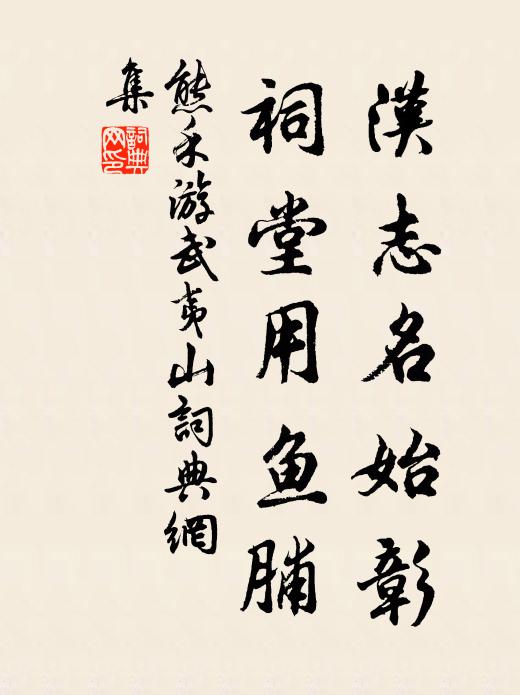 漢志名始彰
祠堂用魚脯
熊禾游武夷山詞典網
集
詞典
网印